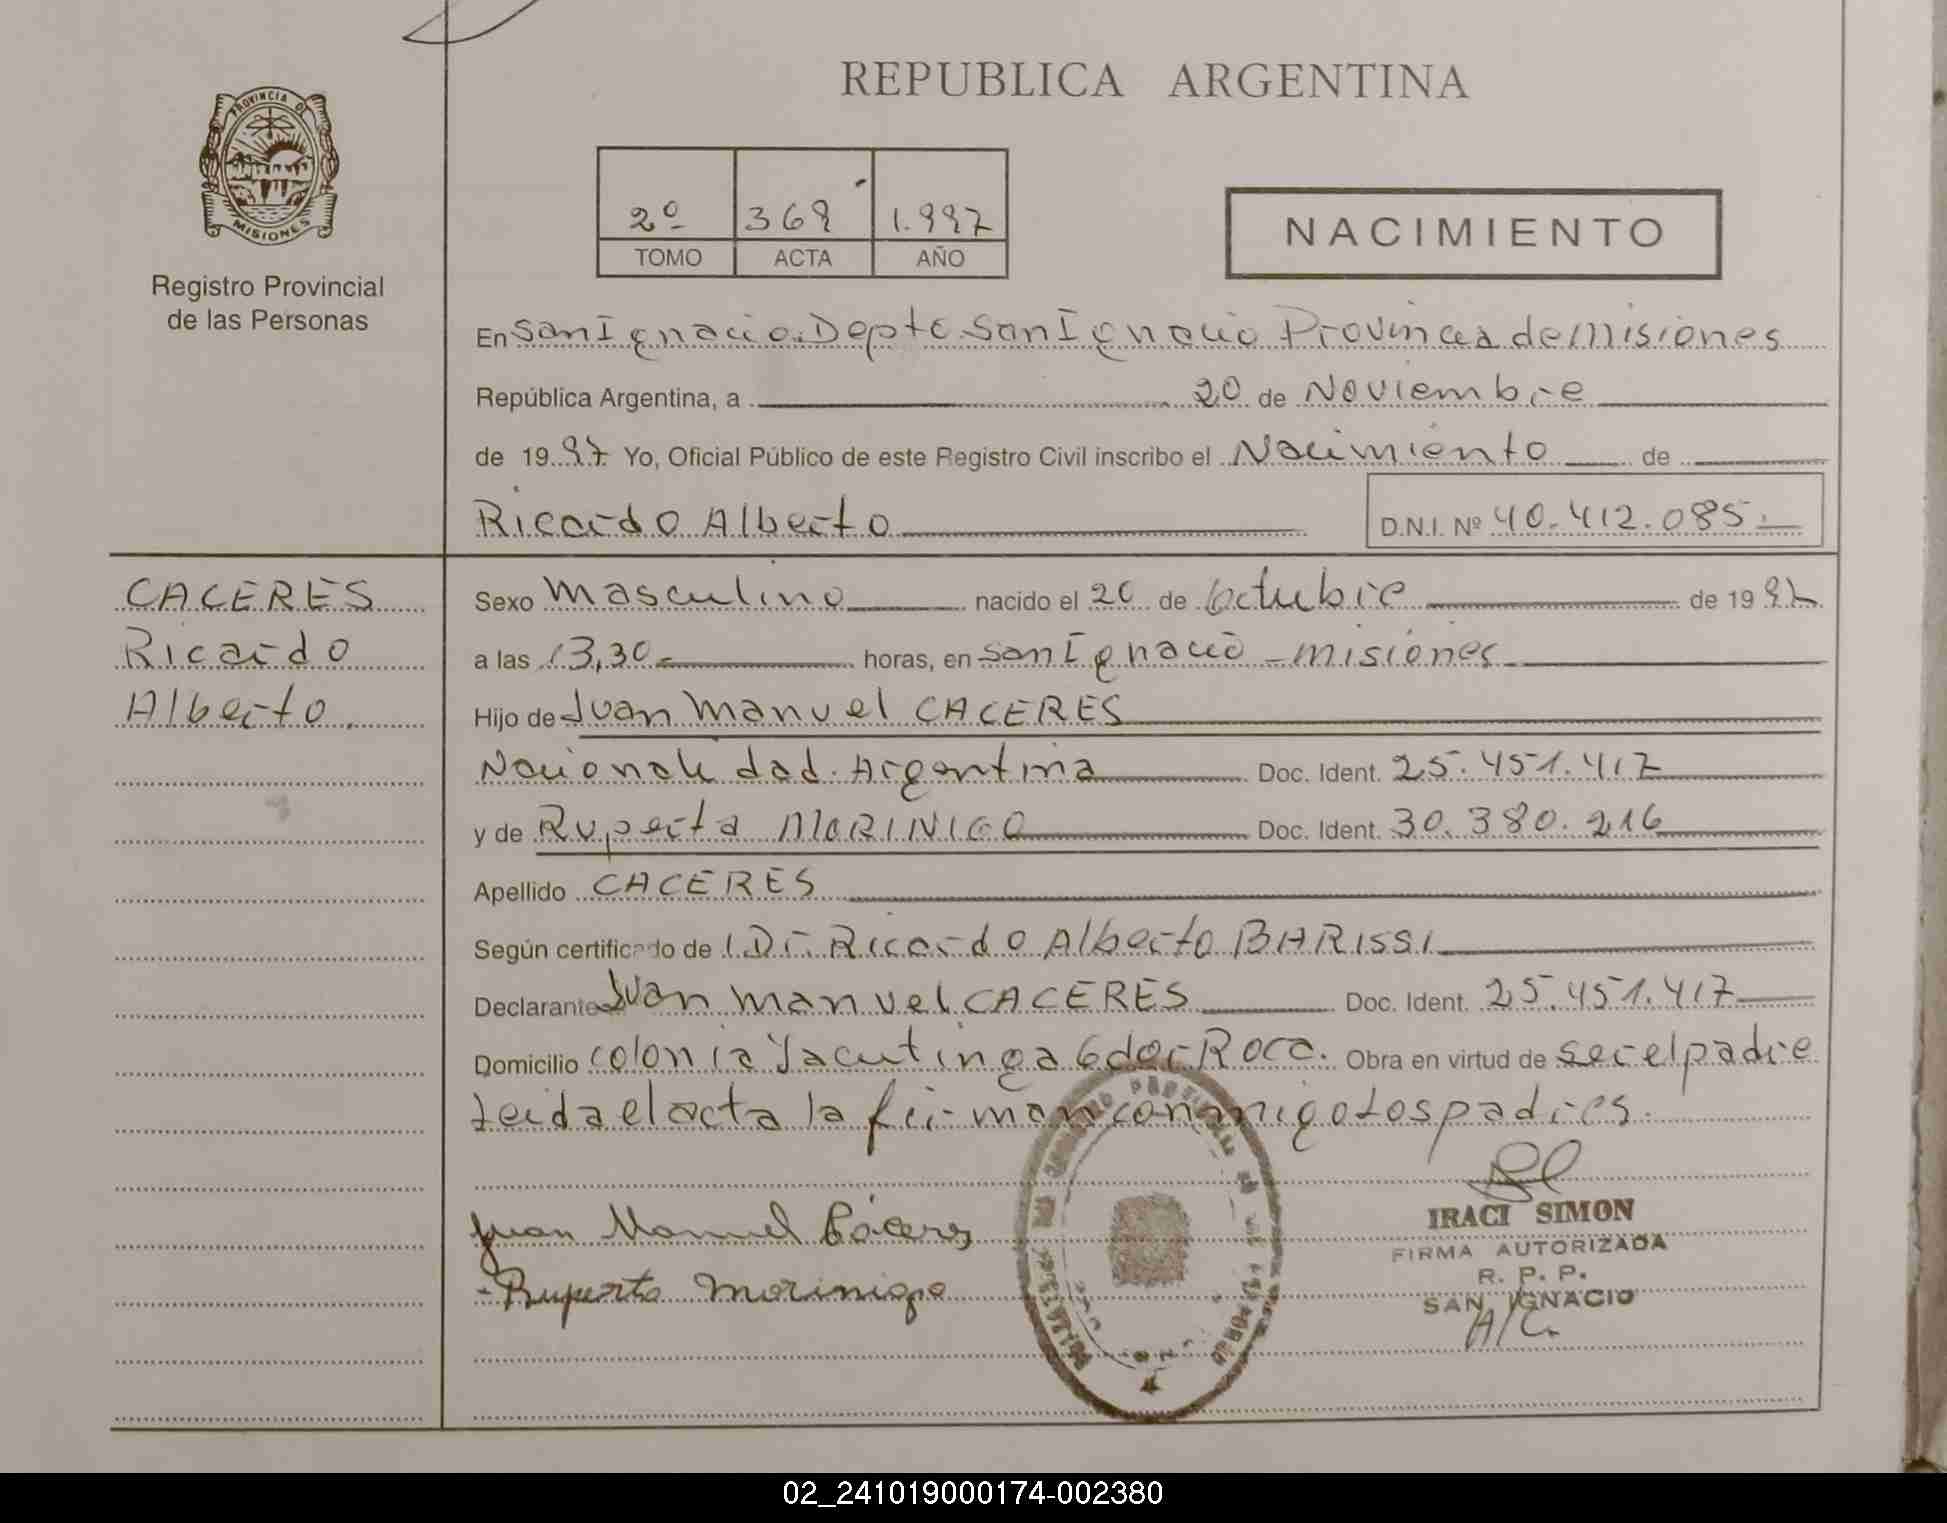 REPUBLICA ARGENTINA
PROVINCIA DE
MISIONES
Registro Provincial
de las Personas
2º 368 1.997
TOMO ACTA AÑO
NACIMIENTO
En San Ignacio. Depto San Ignacio Provincia de Misiones
República Argentina, a 20 de Noviembre
de 1997 Yo, Oficial Público de este Registro Civil inscribo el Nacimiento de
Ricardo Alberto D.N.I. Nº 40.412.085.
CACERES
Ricardo
Alberto.
Sexo Masculino nacido el 20 de Octubre de 1997
a las 13,30 horas, en San Ignacio - Misiones
Hijo de Juan Manuel CACERES
Nacionalidad. Argentina Doc. Ident. 25.451.417
y de Ruperta MORINIGO Doc. Ident. 30.380.216
Apellido CACERES
Según certificado de Dr. Ricardo Alberto BARISSI
Declarante Juan Manuel CACERES Doc. Ident. 25.451.417
Domicilio Colonia Yacutinga Gdor Roca. Obra en virtud de ser el padre
Leida el acta la firman conmigo los padres.
Juan Manuel Cáceres
Ruperta Morinigo
IRACI SIMON
FIRMA AUTORIZADA
R. P. P.
SAN IGNACIO
A/C.
02_241019000174-002380